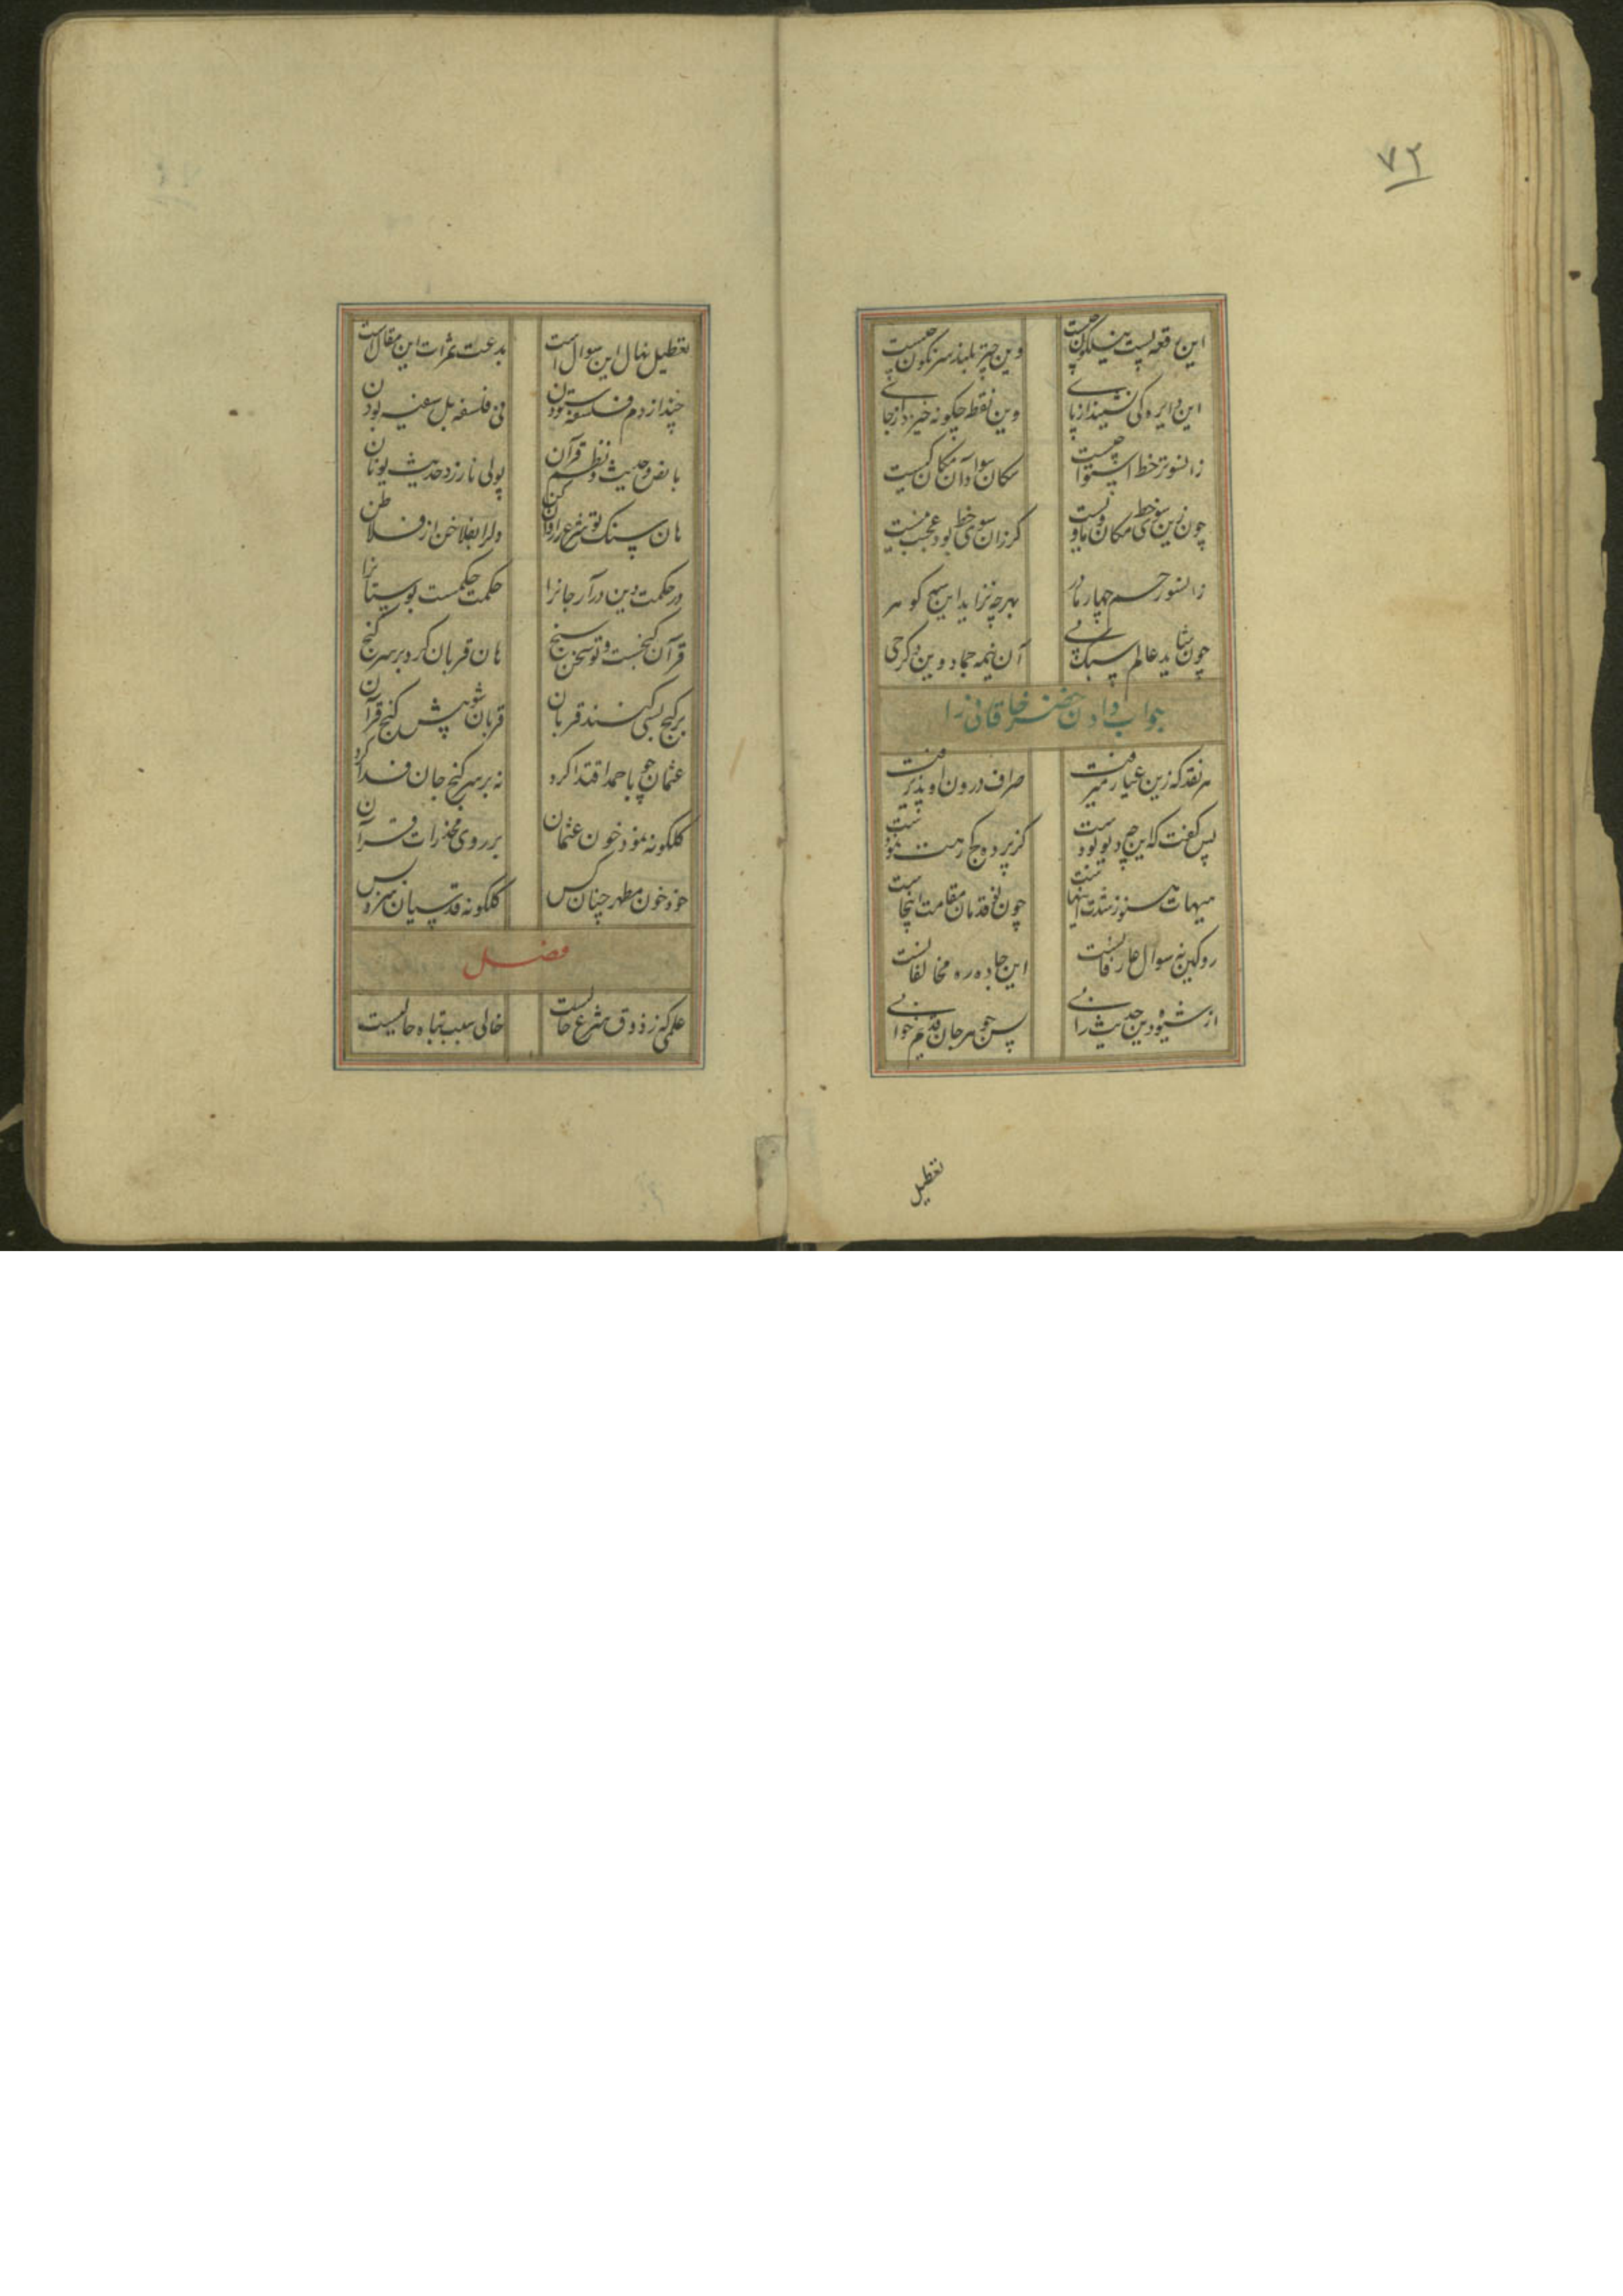 ۷۲
این رقعه پست نیلگون چیست وین چتر بلند سرنگون چیست
این دایره کی نشیند از پای وین نقطه چگونه خیزد از جای
زانسوتر خط استوا چیست مکان سواد آن مکان کیست
چون زین سوی خط مکان ماویست کرزان سوی خط بود عجب نیست
زانسو رحم چهار مادر بهر چه نزاید این سه کوهر
چون شاید عالم سبک پی آن نیمه جماد وین دکر حی
جواب دادن خضر خاقانی را
هر نقد که زین عیار میرفت صراف درون او پذیرفت
پس کفت که این چه دیو بودست کز پرده کج رهت نمودست
هیهات هنوزت این هاست چون تو قدمان مقامت اینجاست
رو کین نه سوال عارفانست این جاده ره مخالفانست
از شیوه دین حدیث رانی پس جوهر جان قدیم خوانی
تعطیل
تعطیل نهال این سوال است بدعت ثمرات این مقال است
چند از دم فلسفه ستودن نی فلسفه بل سفیه بودن
با نص و حدیث و نظم قرآن پولی نارزد حدیث یونان
هان سنک تو شرع را روان کن دلرا بفلاخن از فلاطن
در حکمت دین در آر جانرا حکمت حکمست بوستانرا
قرآن کنجست و تو سخن سنج هان قربان کرد بر سر کنج
بر کنج بسی کنند قربان قربان شو پیش کنج قرآن
عثمان چو باحمد اقتدا کرد نه بر سر کنج جان فدا کرد
کلکونه نمود خون عثمان بر روی مخدرات قرآن
خود خون مطهر چنان کس کلکونه قدسیان سزد بس
فصل
علمی که ز ذوق شرع خالیست خالی سبب تباه حالیست